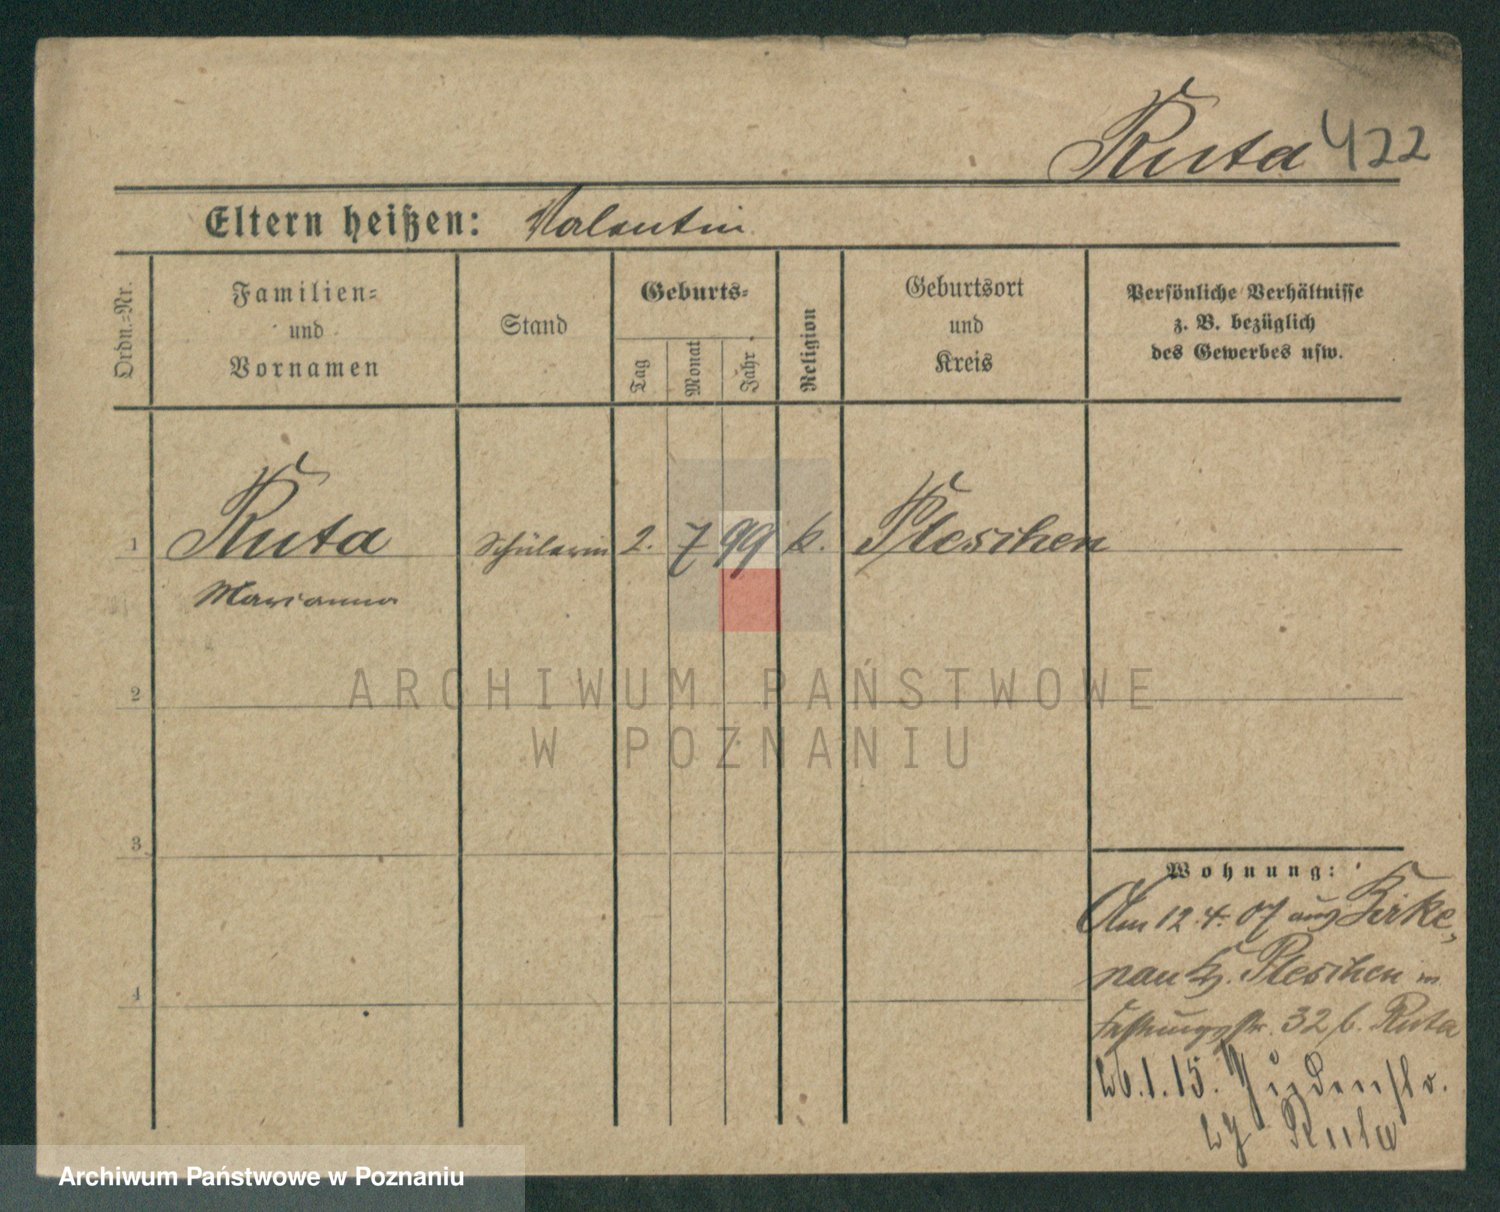 Ruta 422
Eltern heißen: Valentin
Ordn.-Nr.
Familien-
und
Vornamen
Stand
Geburts-
Tag
Monat
Jahr
Religion
Geburtsort
und
Kreis
Persönliche Verhältnisse
z. B. bezüglich
des Gewerbes usw.
1 Ruta Schülerin 2. 7 99 k. Pleschen
Marianna
2
3
4
Wohnung:
Am 12.4.07 aus Birke,
nau Pleschen in
32 b. Ruta
26.1.15. Judenstr.
27 Ruta
ARCHIWUM PAŃSTWOWE
W POZNANIU
Archiwum Państwowe w Poznaniu